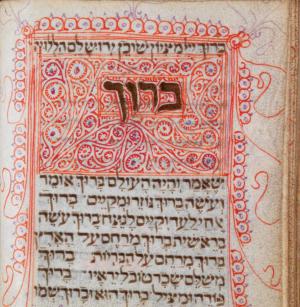 ברוך ייי מציון שוכן ירושלם הללויה
ברוך
שאמר והיה העולם ברוך אומר
ועשה ברוך גוזר ומקיים ברוך
אל חי לעד וקיים לנצח ברוך עשה
בראשית ברוך מרחם על הארץ
ברוך מרחם על הבריות ברוך
משלם שכר טוב ליראיו ברוך
פודה ומציל ברוך הוא וברוך שמו